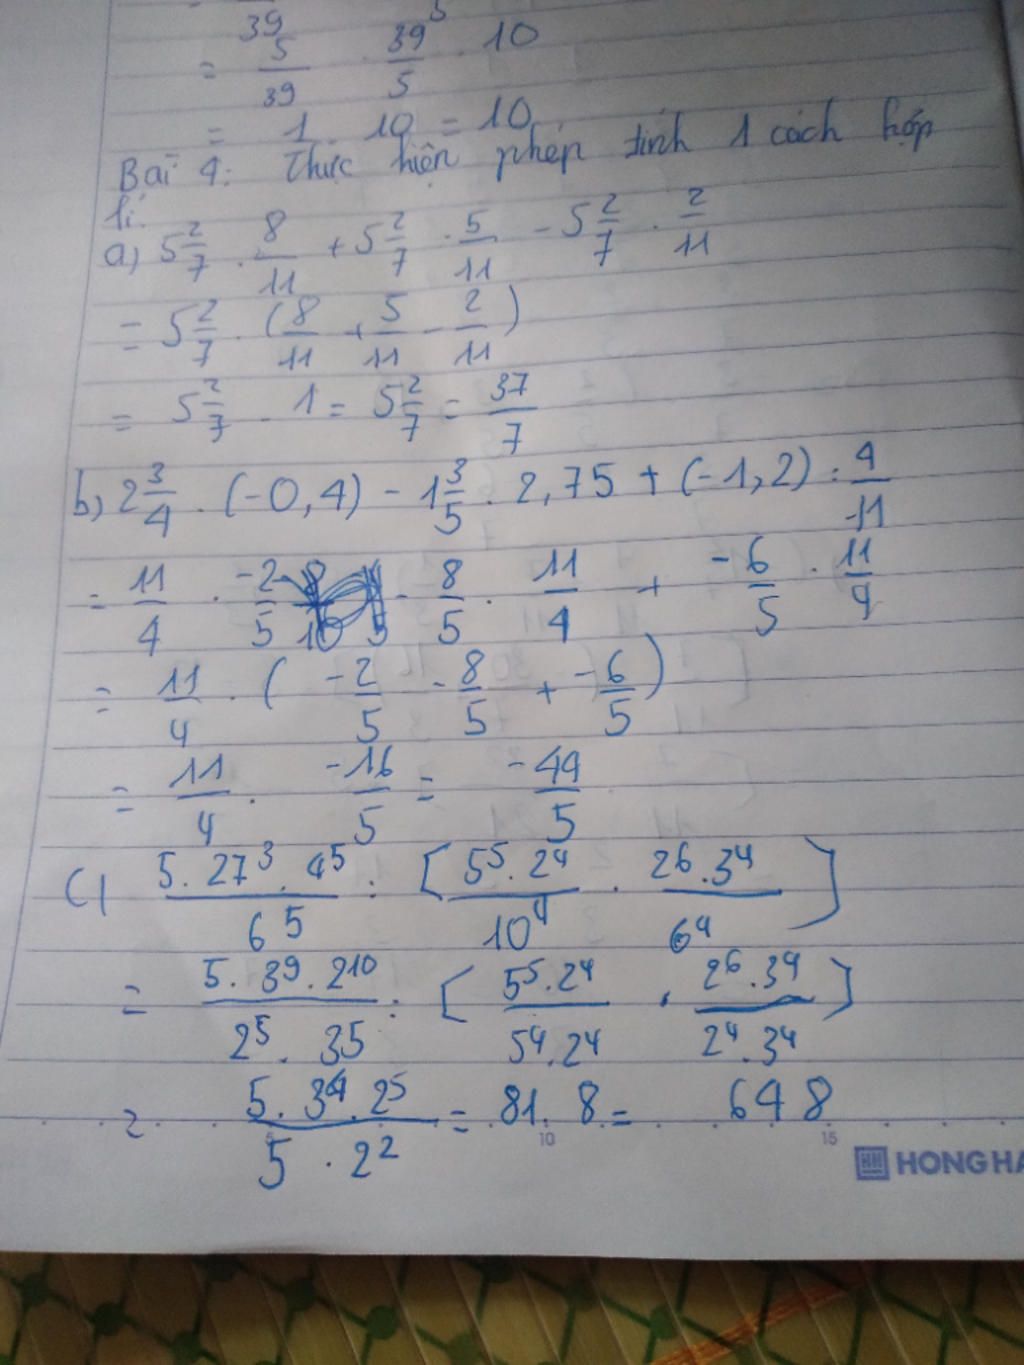 39
= 5/39 . 39/5 . 10
= 1 . 10 = 10
Bài 4: Thực hiện phép tính 1 cách hợp
lí.
a) 5 2/7 . 8/11 + 5 2/7 . 5/11 - 5 2/7 . 2/11
= 5 2/7 . (8/11 + 5/11 - 2/11)
= 5 2/7 . 1 = 5 2/7 = 37/7
b) 2 3/4 . (-0,4) - 1 3/5 . 2,75 + (-1,2) : 4/11
= 11/4 . -2/5 - 8/5 . 11/4 + -6/5 . 11/4
= 11/4 . (-2/5 - 8/5 + -6/5)
= 11/4 . -16/5 = -44/5
c) 5.27³.4⁵/6⁵ : [5⁵.2⁴/10⁴ . 2⁶.3⁴/6⁴]
= 5.3⁹.2¹⁰/2⁵.3⁵ : [5⁵.2⁴/5⁴.2⁴ . 2⁶.3⁴/2⁴.3⁴]
= 5.3⁴.2⁵/5.2² = 81.8 = 648
5 10 15
HONG HA